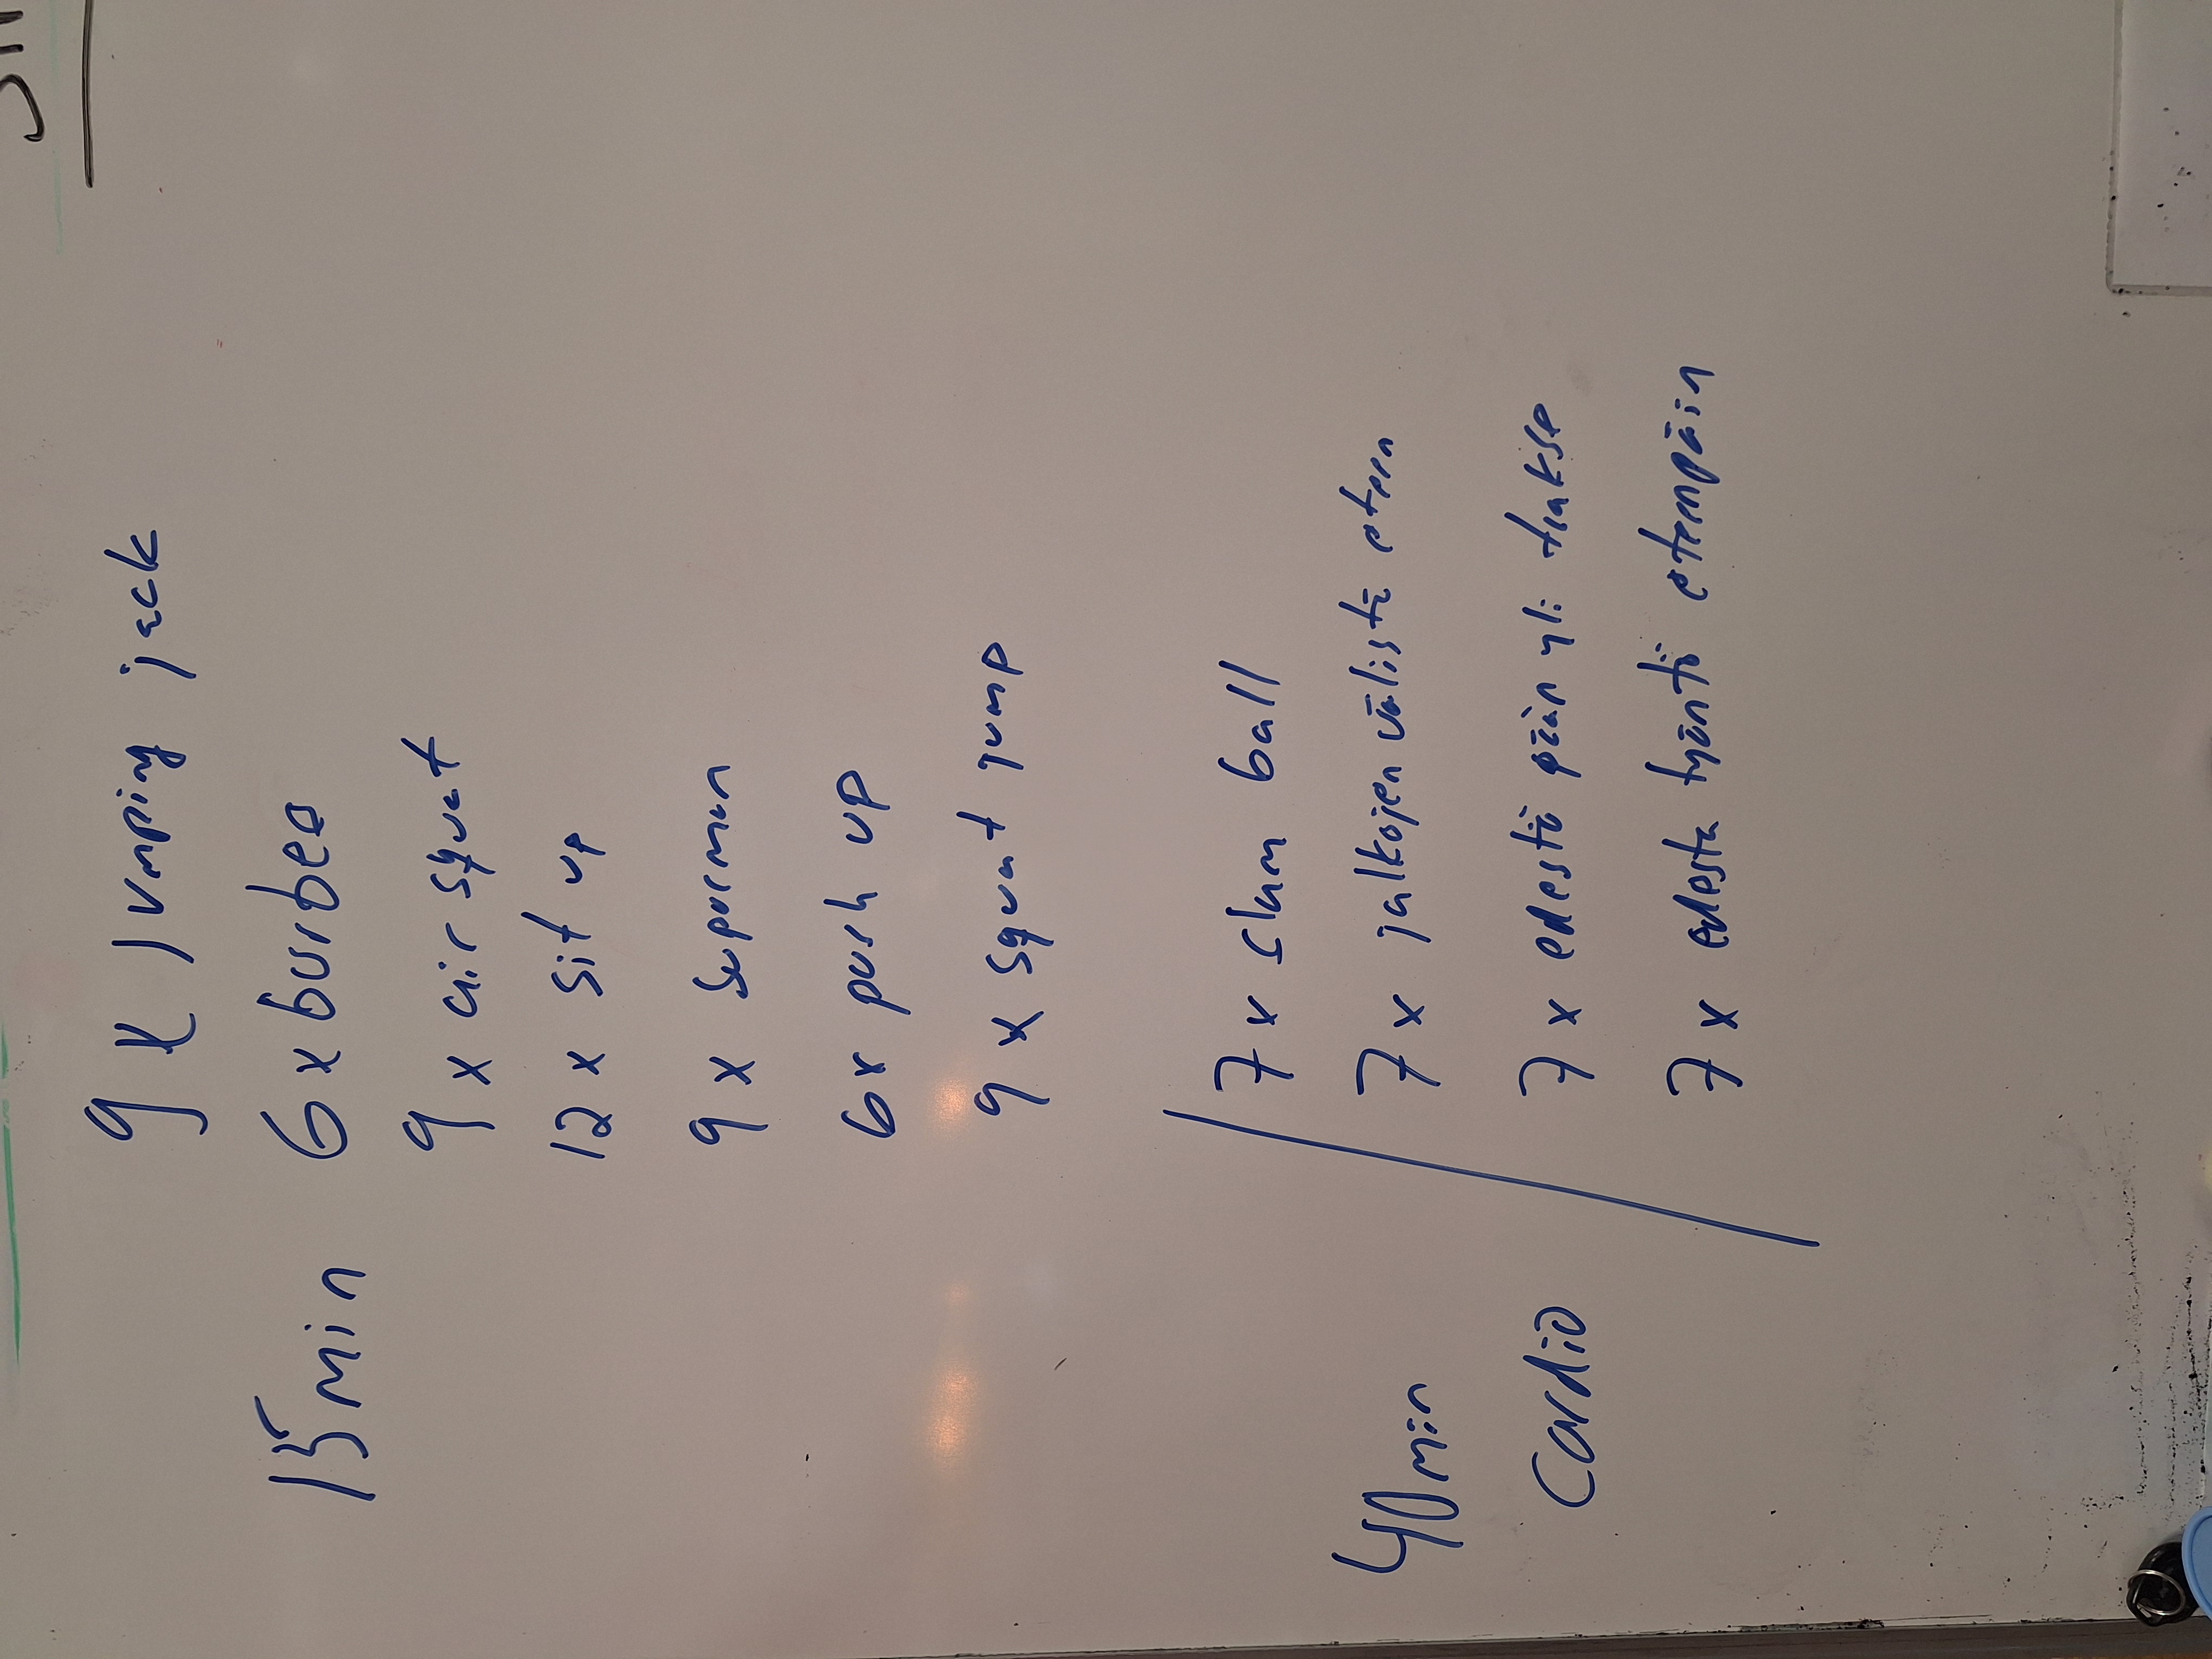 9 x jumping jack
15 min 6 x burbee
9 x air squat
12 x sit up
9 x superman
6 x push up
9 x squat jump
7 x slam ball
40 min 7 x jalkojen välistä eteen
Cardio 7 x edestä pään yli taakse
7 x edestä työntö eteenpäin